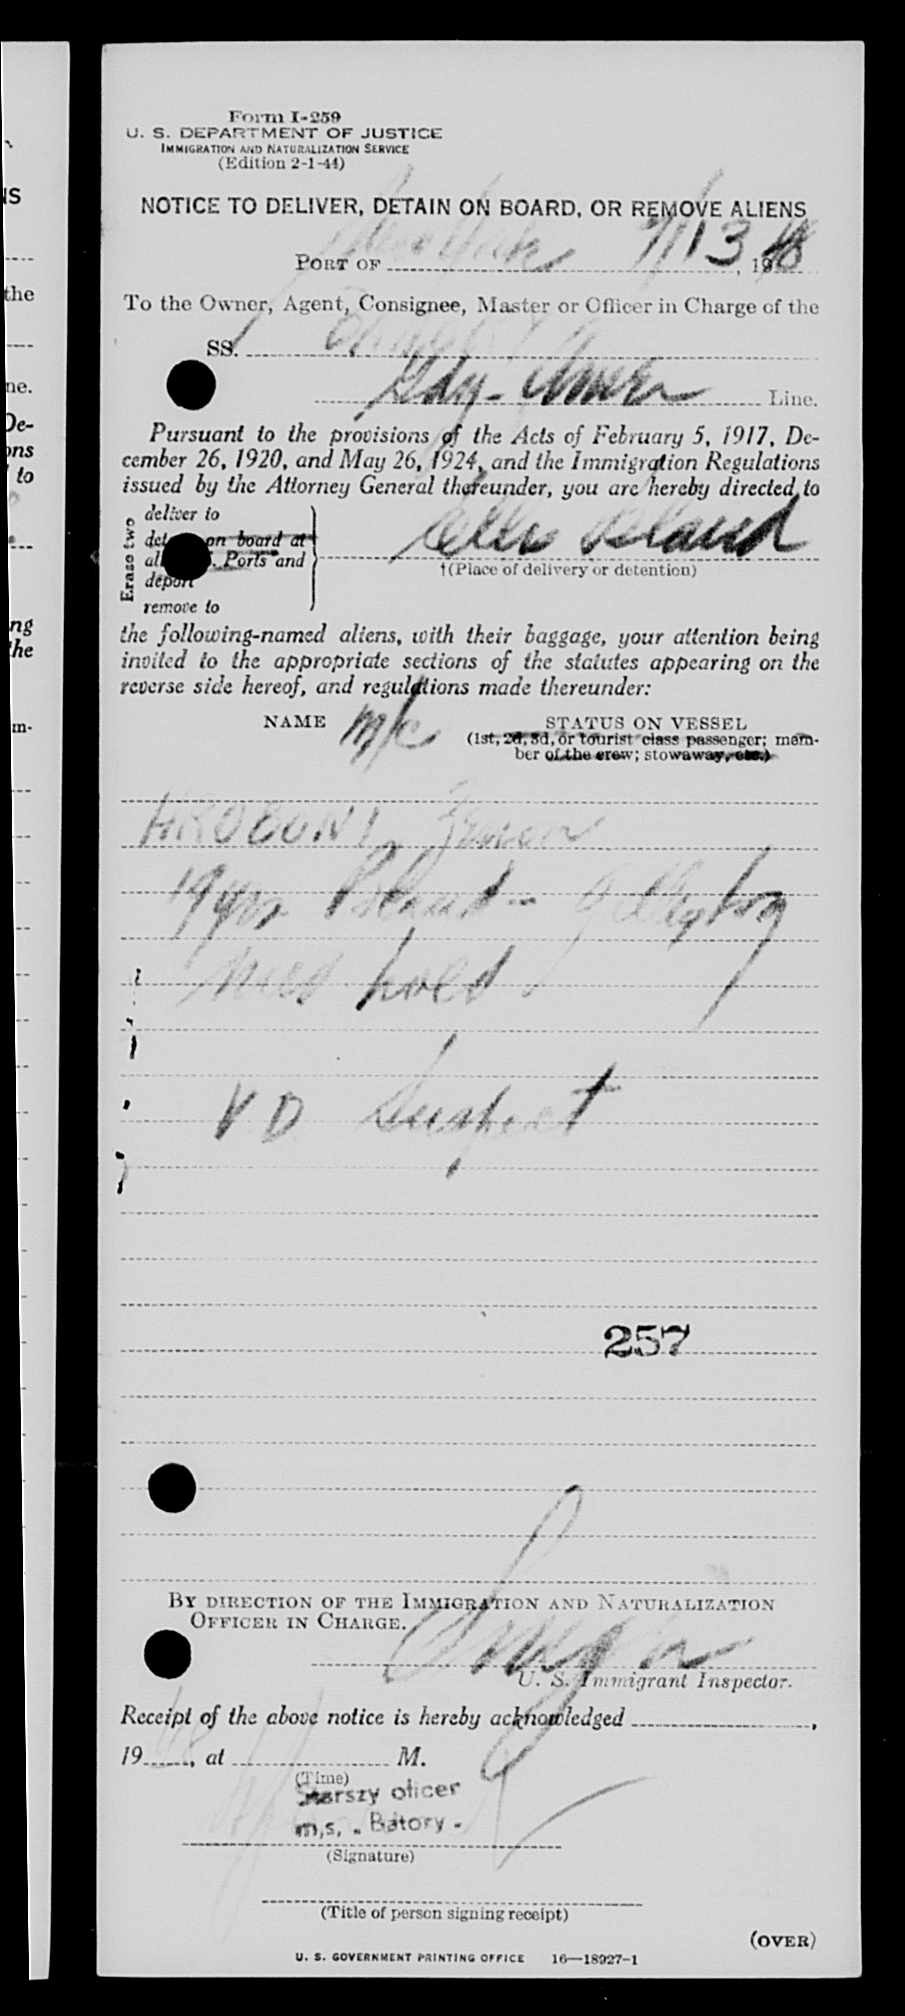 Form I-259
U. S. DEPARTMENT OF JUSTICE
IMMIGRATION AND NATURALIZATION SERVICE
(Edition 2-1-44)
NOTICE TO DELIVER, DETAIN ON BOARD, OR REMOVE ALIENS
PORT OF New York 7/13, 1948
To the Owner, Agent, Consignee, Master or Officer in Charge of the
SS.
Gdy-Amer Line.
Pursuant to the provisions of the Acts of February 5, 1917, De-
cember 26, 1920, and May 26, 1924, and the Immigration Regulations
issued by the Attorney General thereunder, you are hereby directed to
Erase two
deliver to
on board at
Ports and
deport
remove to
Ellis Island
†(Place of delivery or detention)
the following-named aliens, with their baggage, your attention being
invited to the appropriate sections of the statutes appearing on the
reverse side hereof, and regulations made thereunder:
NAME m/c STATUS ON VESSEL
(1st, 2d, 3d, or tourist class passenger; mem-
ber of the crew; stowaway, etc.)
19 yrs Poland -
Med hold
VD Suspect
257
BY DIRECTION OF THE IMMIGRATION AND NATURALIZATION
OFFICER IN CHARGE.
U. S. Immigrant Inspector.
Receipt of the above notice is hereby acknowledged ,
19 , at M.
(Time)
Starszy oficer
m,s, . Batory .
(Signature)
(Title of person signing receipt)
(OVER)
U. S. GOVERNMENT PRINTING OFFICE 16—18927-1